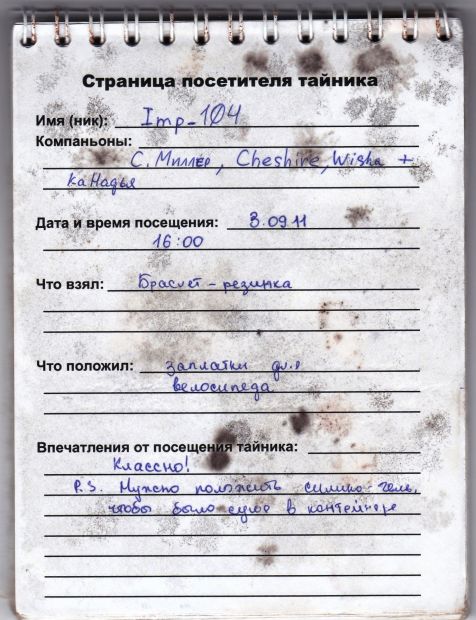 Страница посетителя тайника
Имя (ник): Imp-104
Компаньоны:
С. Миллер, Cheshire, Wisha +
каНадья
Дата и время посещения: 3.09.11
16:00
Что взял: Браслет-резинка
Что положил: заплатки для
велосипеда
Впечатления от посещения тайника:
Классно!
P.S. Нужно положить силико-гель,
чтобы было сухо в контейнере